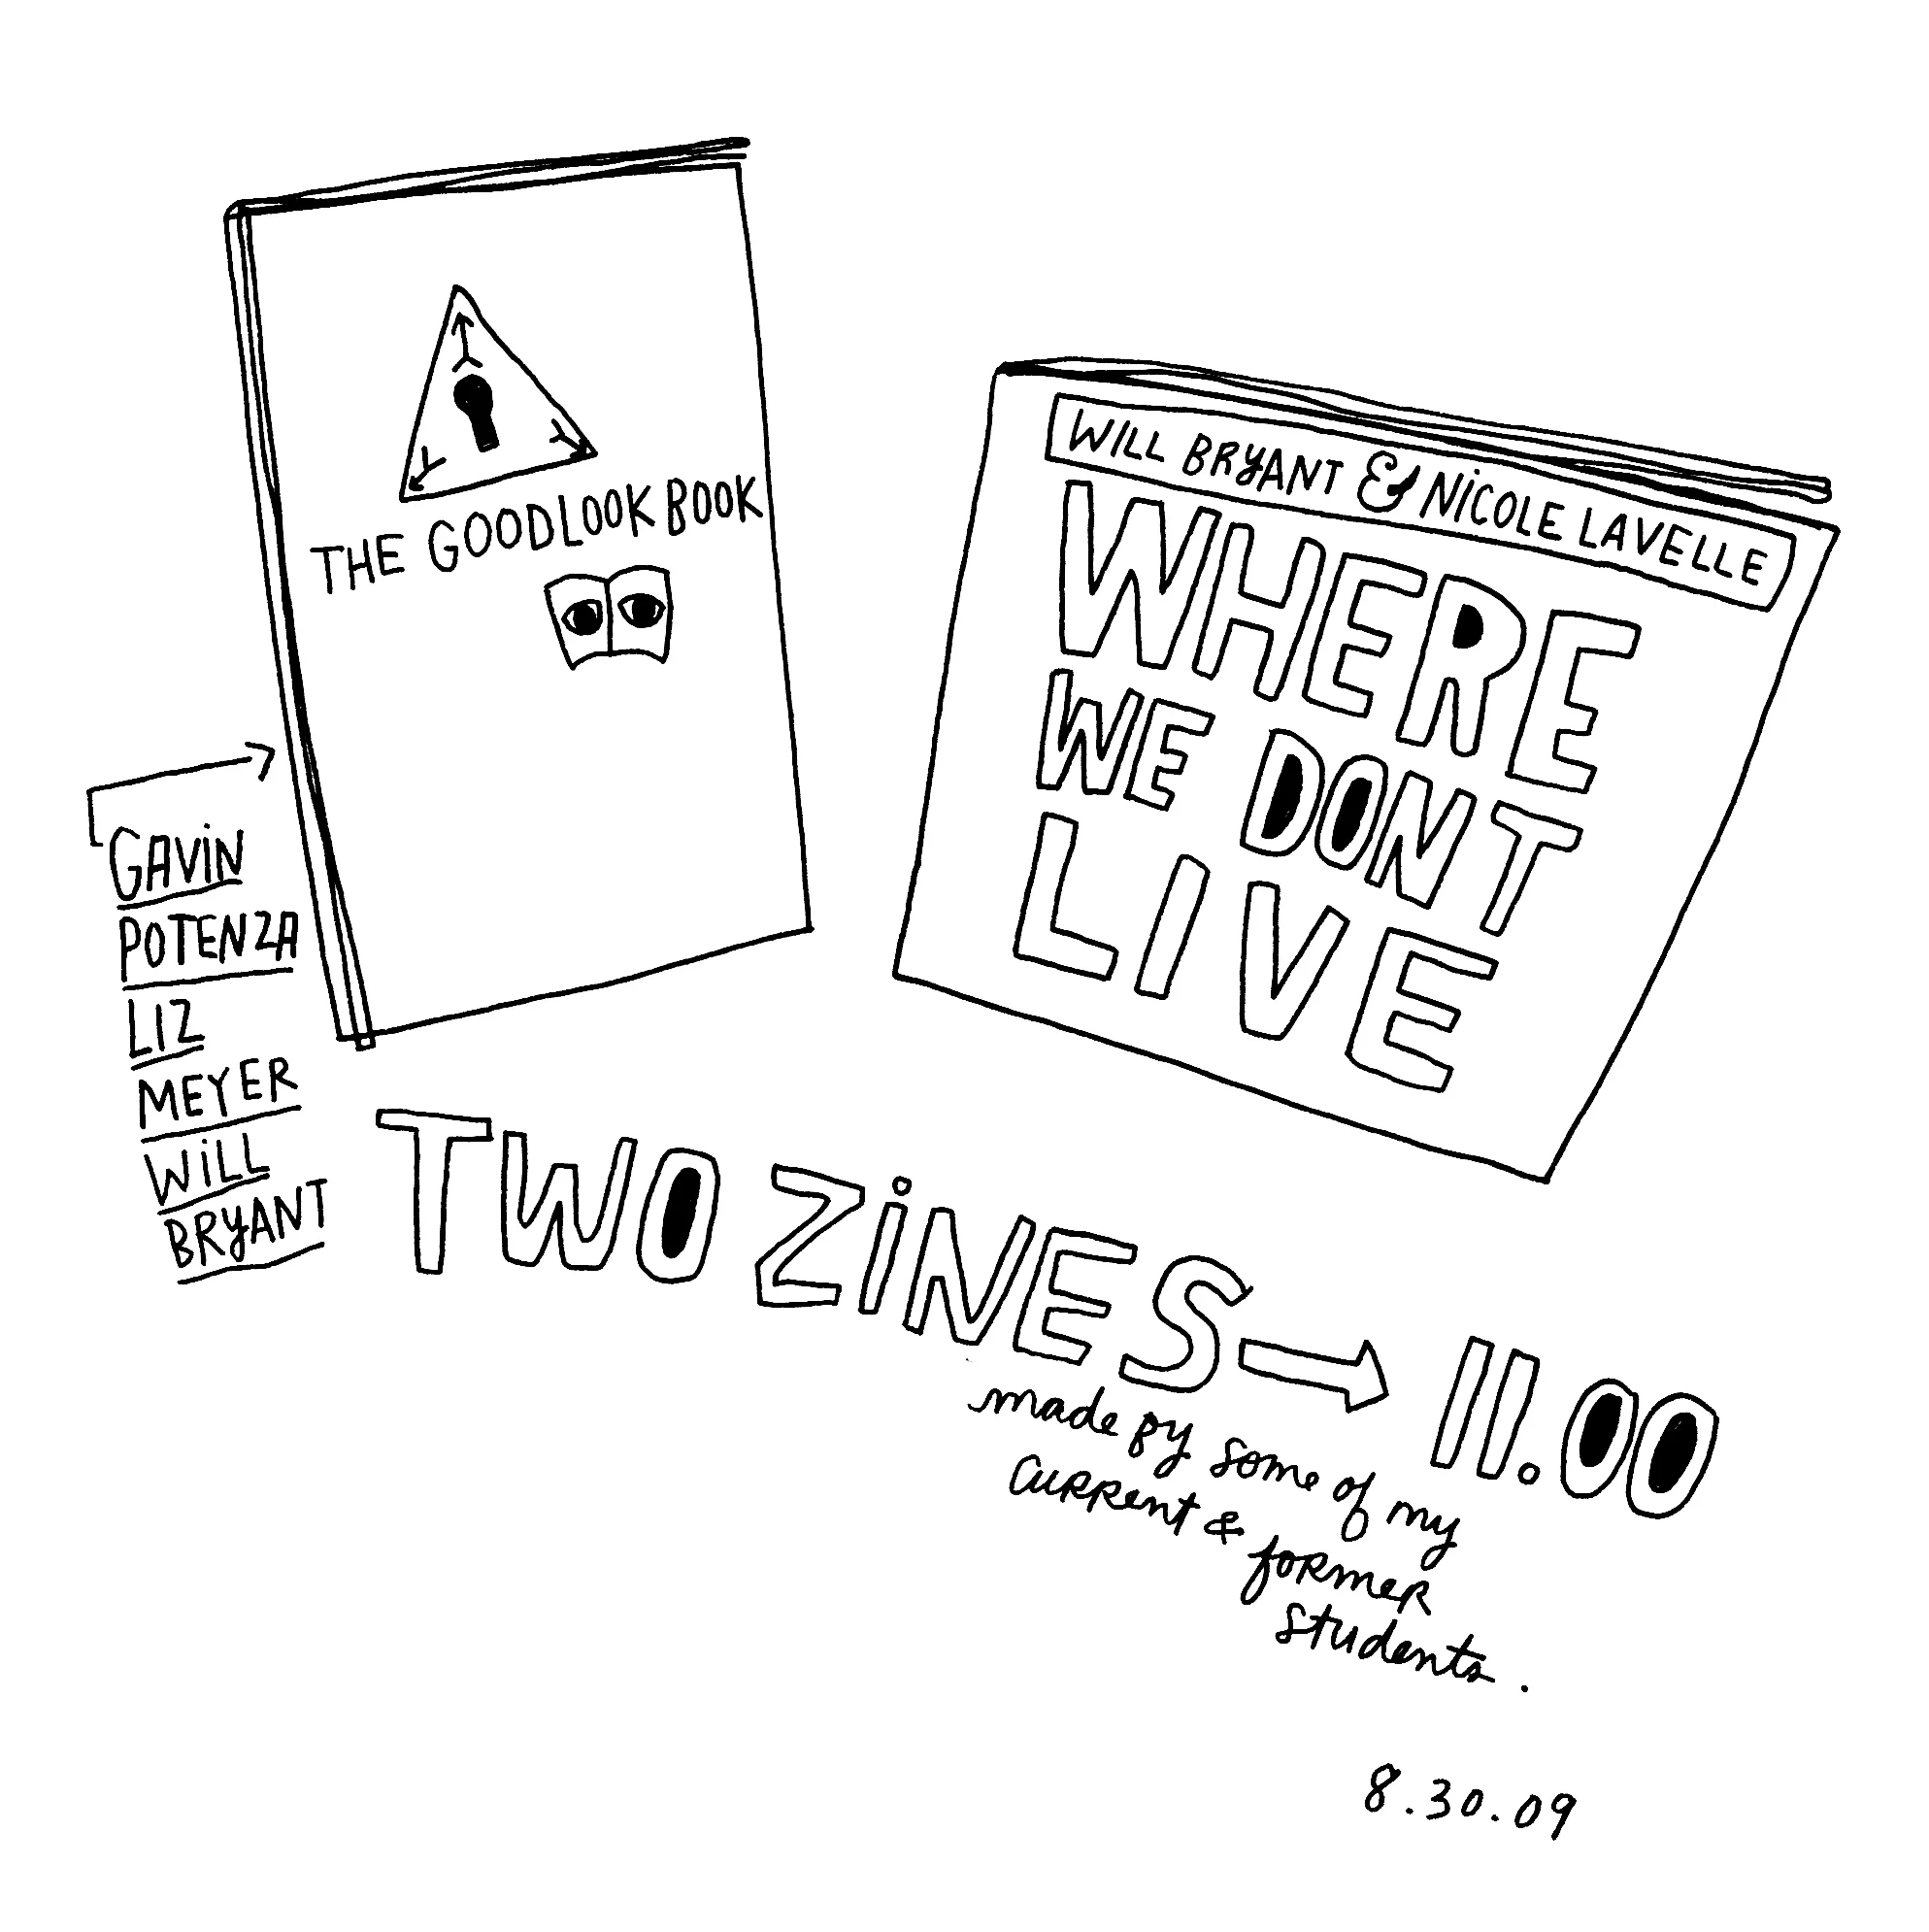 THE GOODLOOK BOOK
GAVIN
POTENZA
LIZ
MEYER
WILL
BRYANT
WILL BRYANT & NICOLE LAVELLE
WHERE
WE DONT
LIVE
TWO ZINES → 11.00
made by some of my
current & former
students.
8.30.09